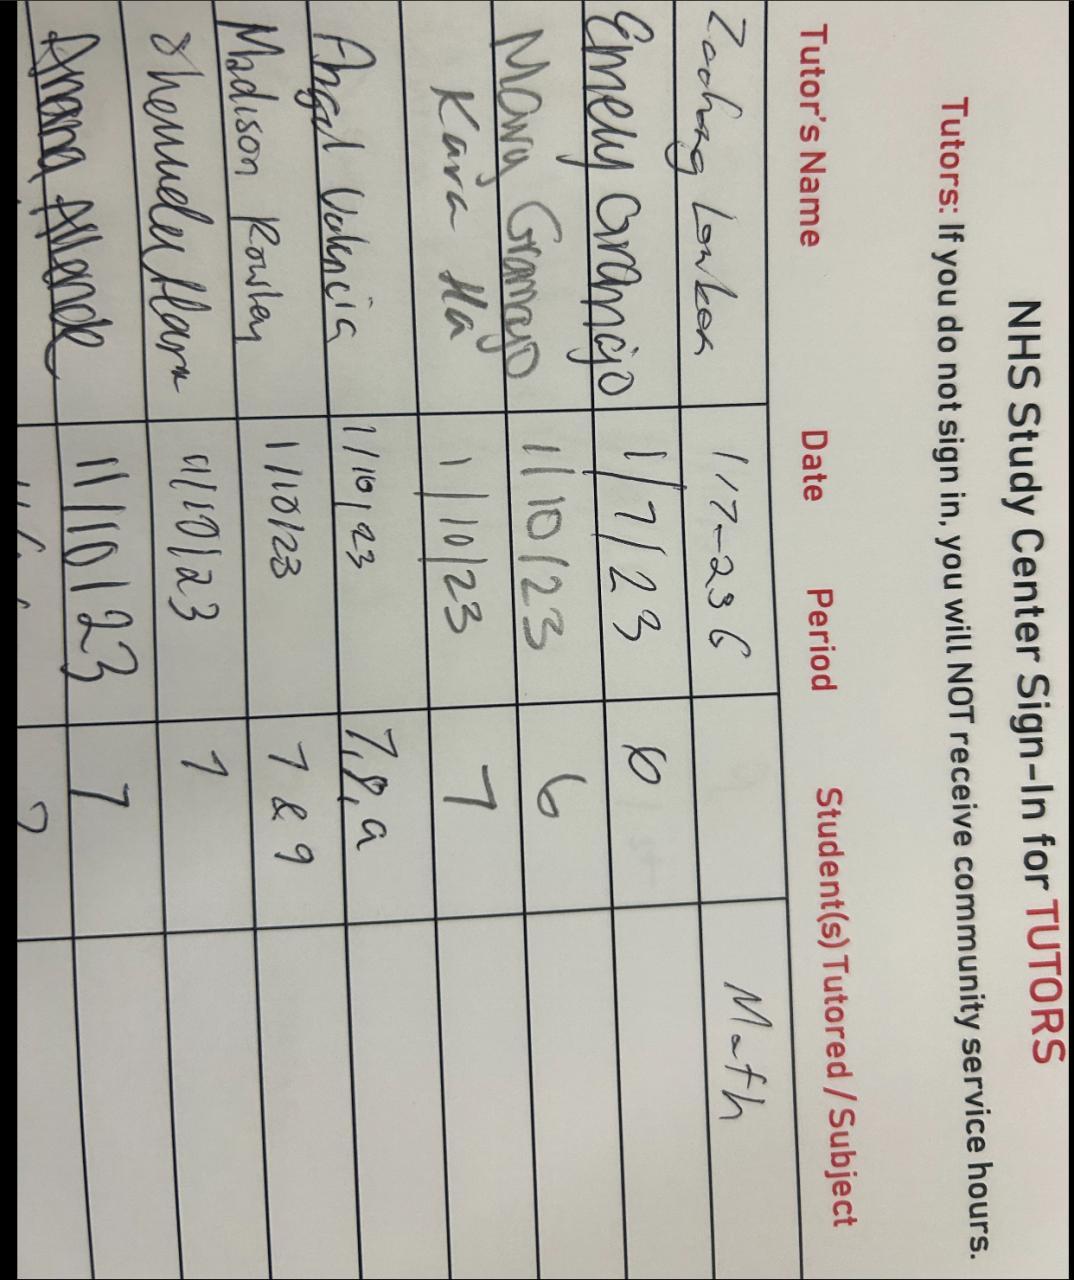 NHS Study Center Sign-In for TUTORS
Tutors: If you do not sign in, you will NOT receive community service hours.
Tutor's Name Date Period Student(s) Tutored / Subject
1-7-23 6 Math
Emely Granajo 1/7/23 6
1/10/23 6
Kara Ha 1/10/23 7
Angel Valencia 1/10/23 7,8,9
Madison Rowley 1/10/23 7 & 9
11/10/23 7
Amana Allende 11/10/23 7